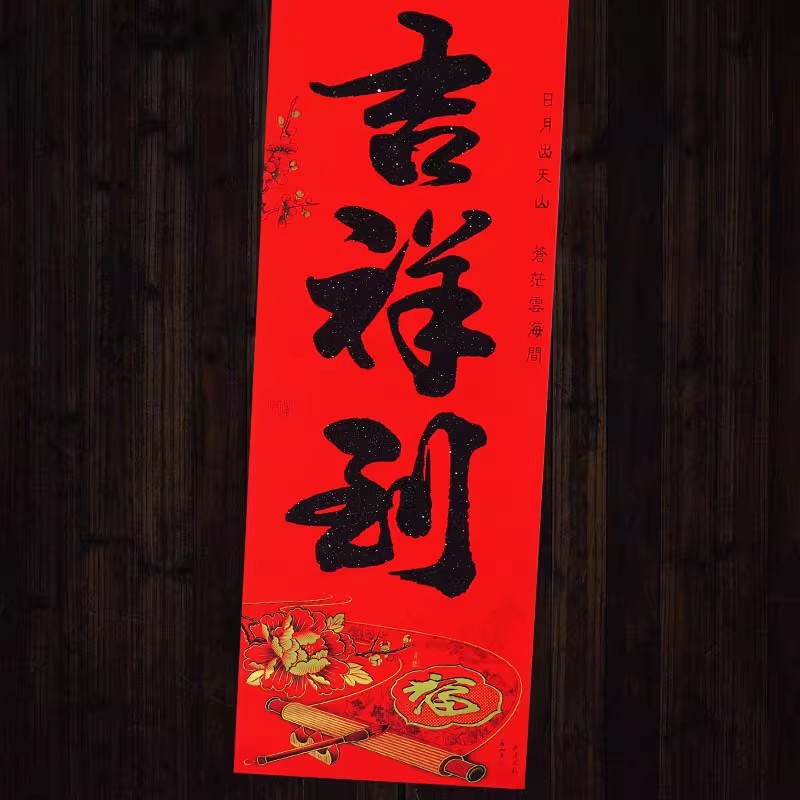 日月出天山 蒼茫雲海間
吉祥到
福